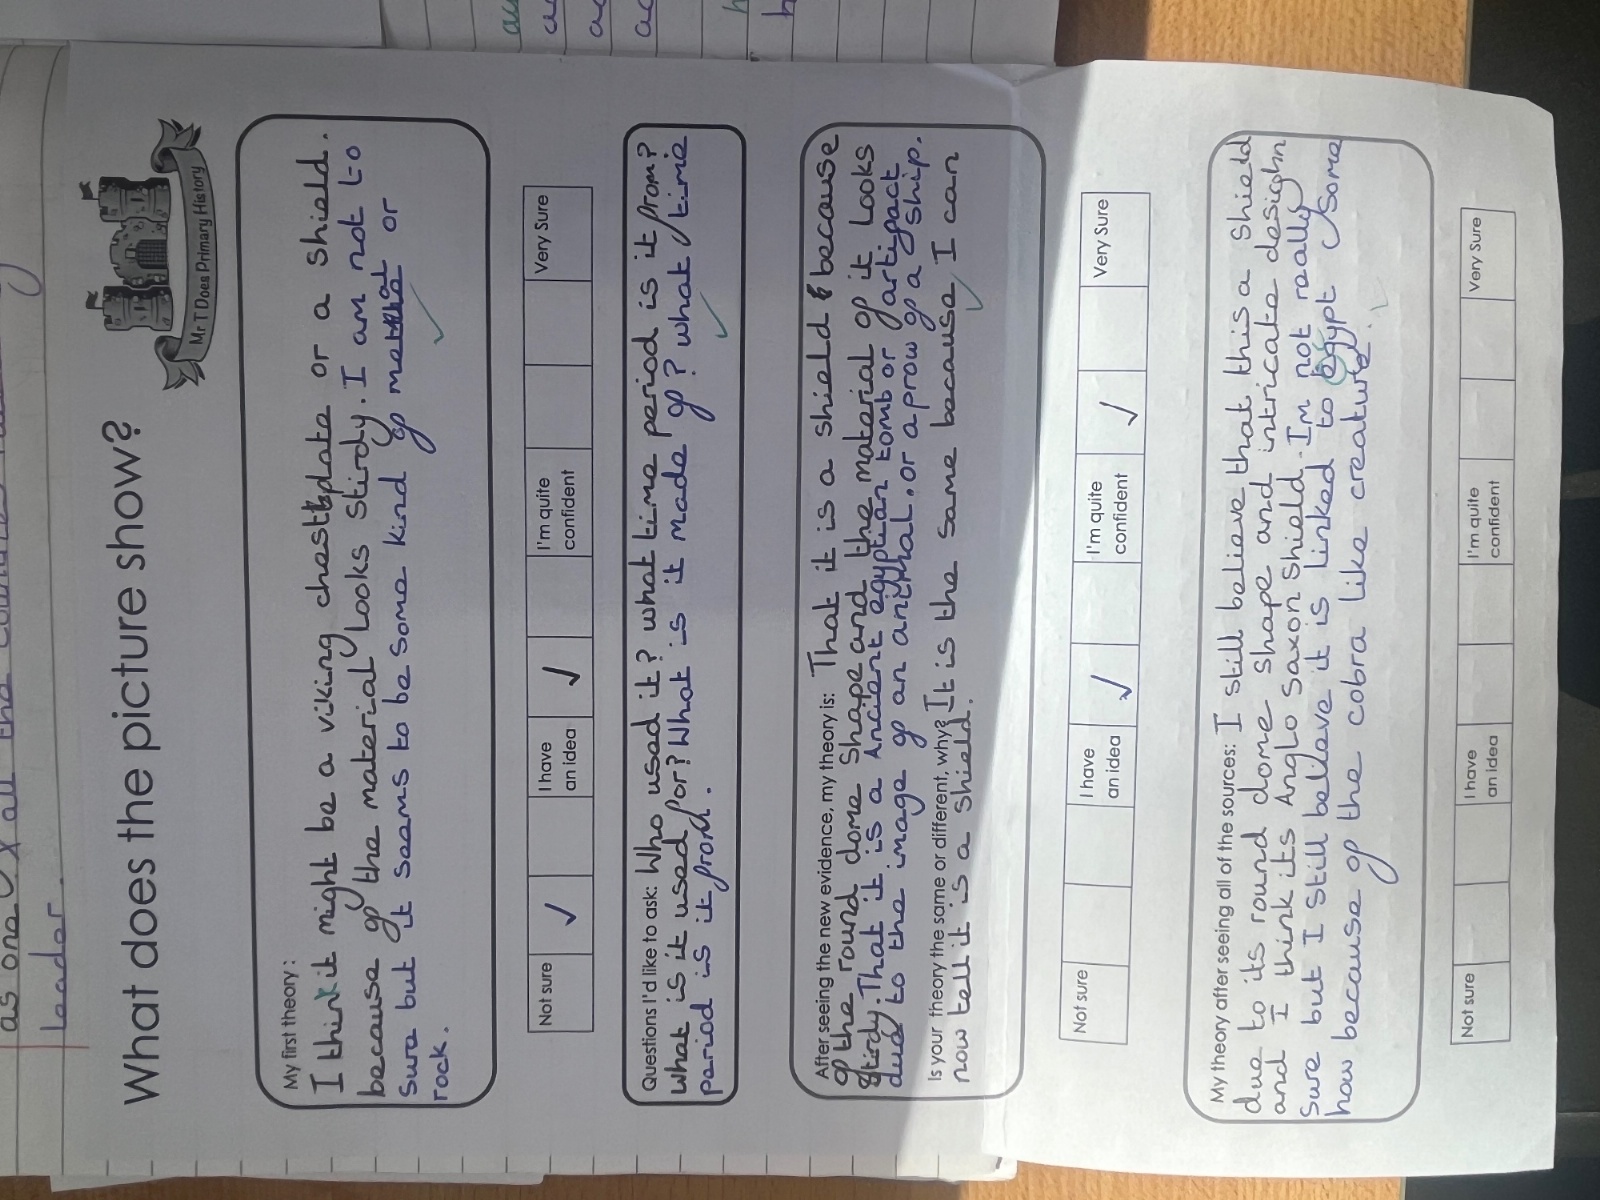 as one
leader.
What does the picture show?
Mr T Does Primary History
My first theory:
I think it might be a viking chestplate or a shield.
because of the material looks stirdy. I am not to
sure but it seems to be some kind of or
rock.
Not sure
I have an idea
I'm quite confident
Very Sure
Questions I'd like to ask: Who used it? what time period is it from?
what is it used for? What is it made of? what time
period is it from.
After seeing the new evidence, my theory is: That it is a shield because
of the round dome shape and the material of it looks
stirdy. That it is a Ancient egyptian tomb or artifact
due to the image of an animal. or a prow of a ship.
Is your theory the same or different, why? It is the same because I can
now tell it is a shield.
Not sure
I have an idea
I'm quite confident
Very Sure
My theory after seeing all of the sources: I still believe that this a shield
due to its round dome shape and intricate desighn
and I think its Anglo saxon shield. Im not really
sure but I still beleave it is linked to egypt some
how because of the cobra like creature.
Not sure
I have an idea
I'm quite confident
Very Sure